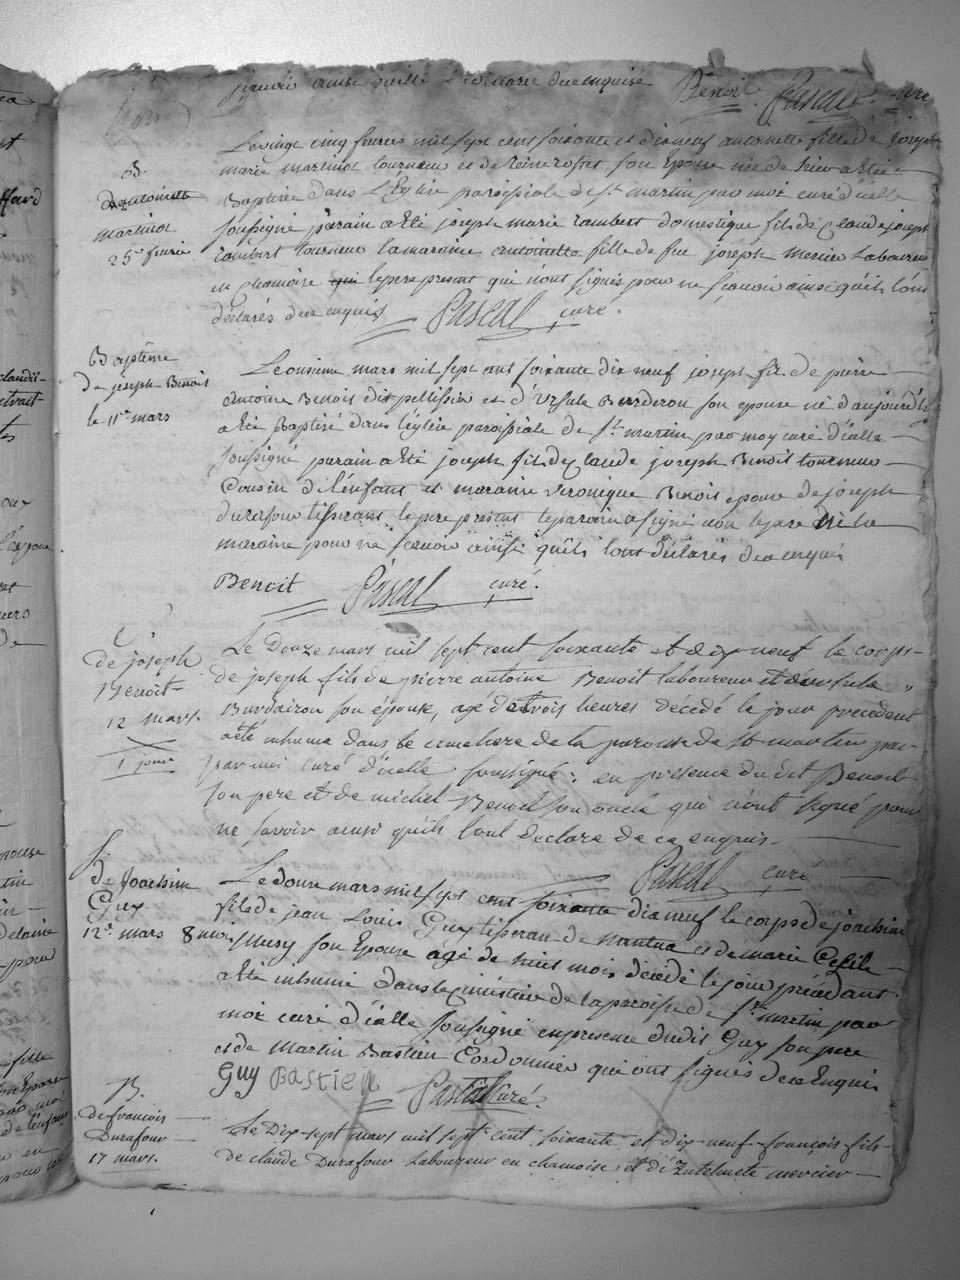 Benoit Pascal curé
Le vingt cinq fevrier mil sept cent soixante et dix neuf antoinette fille de joseph
marie martinot tourneur et de son Epouse née de hier a Eté
B.
Baptisée dans L'Eglise paroissiale de St martin par moi curé d'icelle
D'antoinette
soussigné parain a Eté joseph marie Lambert domestique fils de Claude joseph
martinot
Lambert tourneur la maraine antoinette fille de feu joseph Mercier Laboureur
25e fevrie
en chamoise qui le pere present qui n'ont signés pour ne sçavoir ainsi qu'ils l'ont
déclarés de ce enquis Pascal curé.
Baptême
de joseph Benoit
le 11e mars
Le onzieme mars mil sept cent soixante dix neuf joseph fils de pierre
Antoine Benoit dit pellissier et d'Ursule Burderon son epouse né d'aujourd'hy
a Eté Baptisé dans l'église paroissiale de St. martin par moy curé d'icelle
soussigné parain a Eté joseph fils de Claude joseph Benoit tourneur
Cousin de l'enfant et maraine Veronique Benoit epouse de joseph
durafour tisserant le pere present le parain a signé non le pere Ni la
maraine pour ne sçavoir ainsi qu'ils l'ont déclarés de ce enquis
Benoit Pascal curé.
de joseph
Benoit
12 mars.
1 jour
Le Douze mars mil sept cent soixante et dix neuf le corps
de joseph fils de pierre antoine Benoit laboureur et d'ursule
Burdairon son épouse, agé de trois heures décédé le jour precedent
a eté inhumé dans le cimetiere de la paroisse de St martin par
par moi curé d'icelle soussigné; en présence du dit Benoit
son pere et de michel Benoit son oncle qui n'ont signé pour
ne savoir ainsi qu'ils l'ont declaré de ce enquis.
Pascal curé
de Joachim
Guy
12e mars 8 mois
Le douze mars mil sept cent soixante dix neuf le corps de joachim
fils de jean Louis Guy tisseran de nantua et de marie Cecile
Musy son Epouse agé de huit mois décédé le jour précédant
a Eté inhumé dans le Cimetière de la paroisse de St. martin par
moi curé d'icelle soussigné en presence dudit Guy son pere
et de Martin Bastien Cordonnier qui ont signés de ce Enquis
Guy Bastien Pascal curé.
B.
de francois
Durafour
17 mars.
Le Dix-sept mars mil sept cent soixante et dix-neuf françois fils
de claude Durafour Laboureur en chamoise et d' mercier